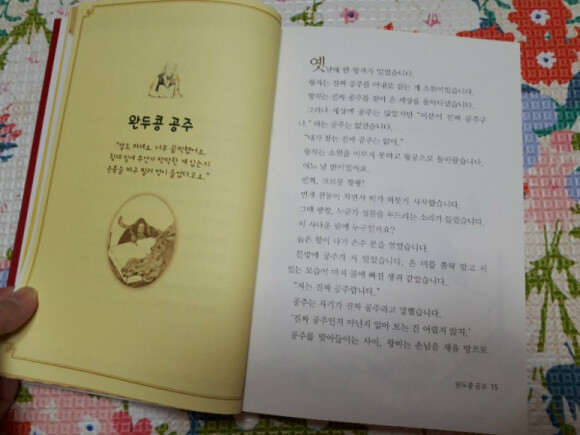 완두콩 공주
"말도 마세요. 너무 끔찍했어요.
침대 밑에 무언가 딱딱한 게 있는지
온몸을 마구 찔러 멍이 들었다고요."
옛날에 한 왕자가 있었습니다.
왕자는 진짜 공주를 아내로 삼는 게 소원이었습니다.
왕자는 진짜 공주를 찾아 온 세상을 돌아다녔습니다.
그러나 세상에 공주는 많았지만 "이분이 진짜 공주구
나." 하는 공주는 없었습니다.
"내가 찾는 진짜 공주는 없어."
왕자는 소원을 이루지 못하고 왕궁으로 돌아왔습니다.
어느 날 밤이었어요.
번쩍, 크르릉 쾅쾅!
번개 천둥이 치면서 비가 퍼붓기 시작했습니다.
그때 쾅쾅, 누군가 성문을 두드리는 소리가 들렸습니다.
이 사나운 밤에 누구일까요?
늙은 왕이 나가 손수 문을 열었습니다.
문밖에 공주가 서 있었습니다. 온 비를 쫄딱 맞고 서
있는 모습이 마치 물에 빠진 생쥐 같았습니다.
"저는 진짜 공주랍니다."
공주는 자기가 진짜 공주라고 말했습니다.
'진짜 공주인지 아닌지 알아 보는 건 어렵지 않지.'
공주를 맞아들이는 사이, 왕비는 손님을 재울 방으로
완두콩 공주 15